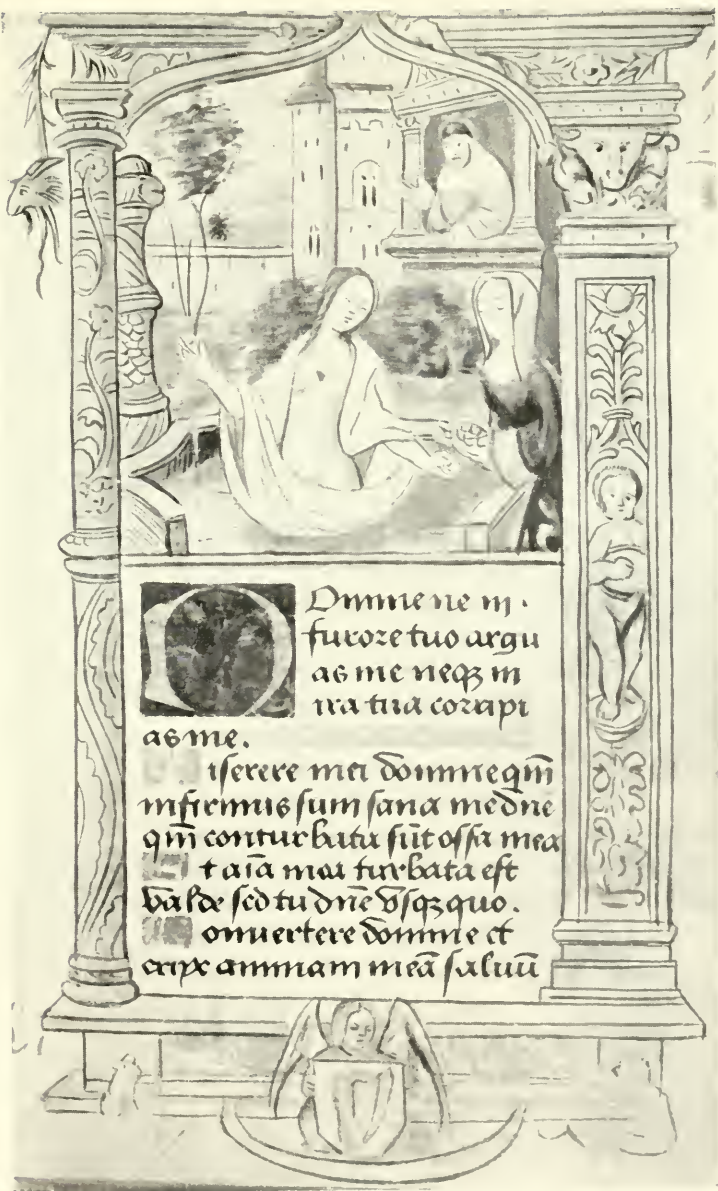 D Omine ne in
furore tuo argu
as me neqꝫ in
ira tua corripi
as me.
iserere mei domine qm̄
infirmus sum sana me dn̄e
qm̄ conturbata sūt ossa mea
t aīa mea turbata est
valde sed tu dn̄e vsqꝫ quo.
onuertere domine et
eripe animam meā saluū